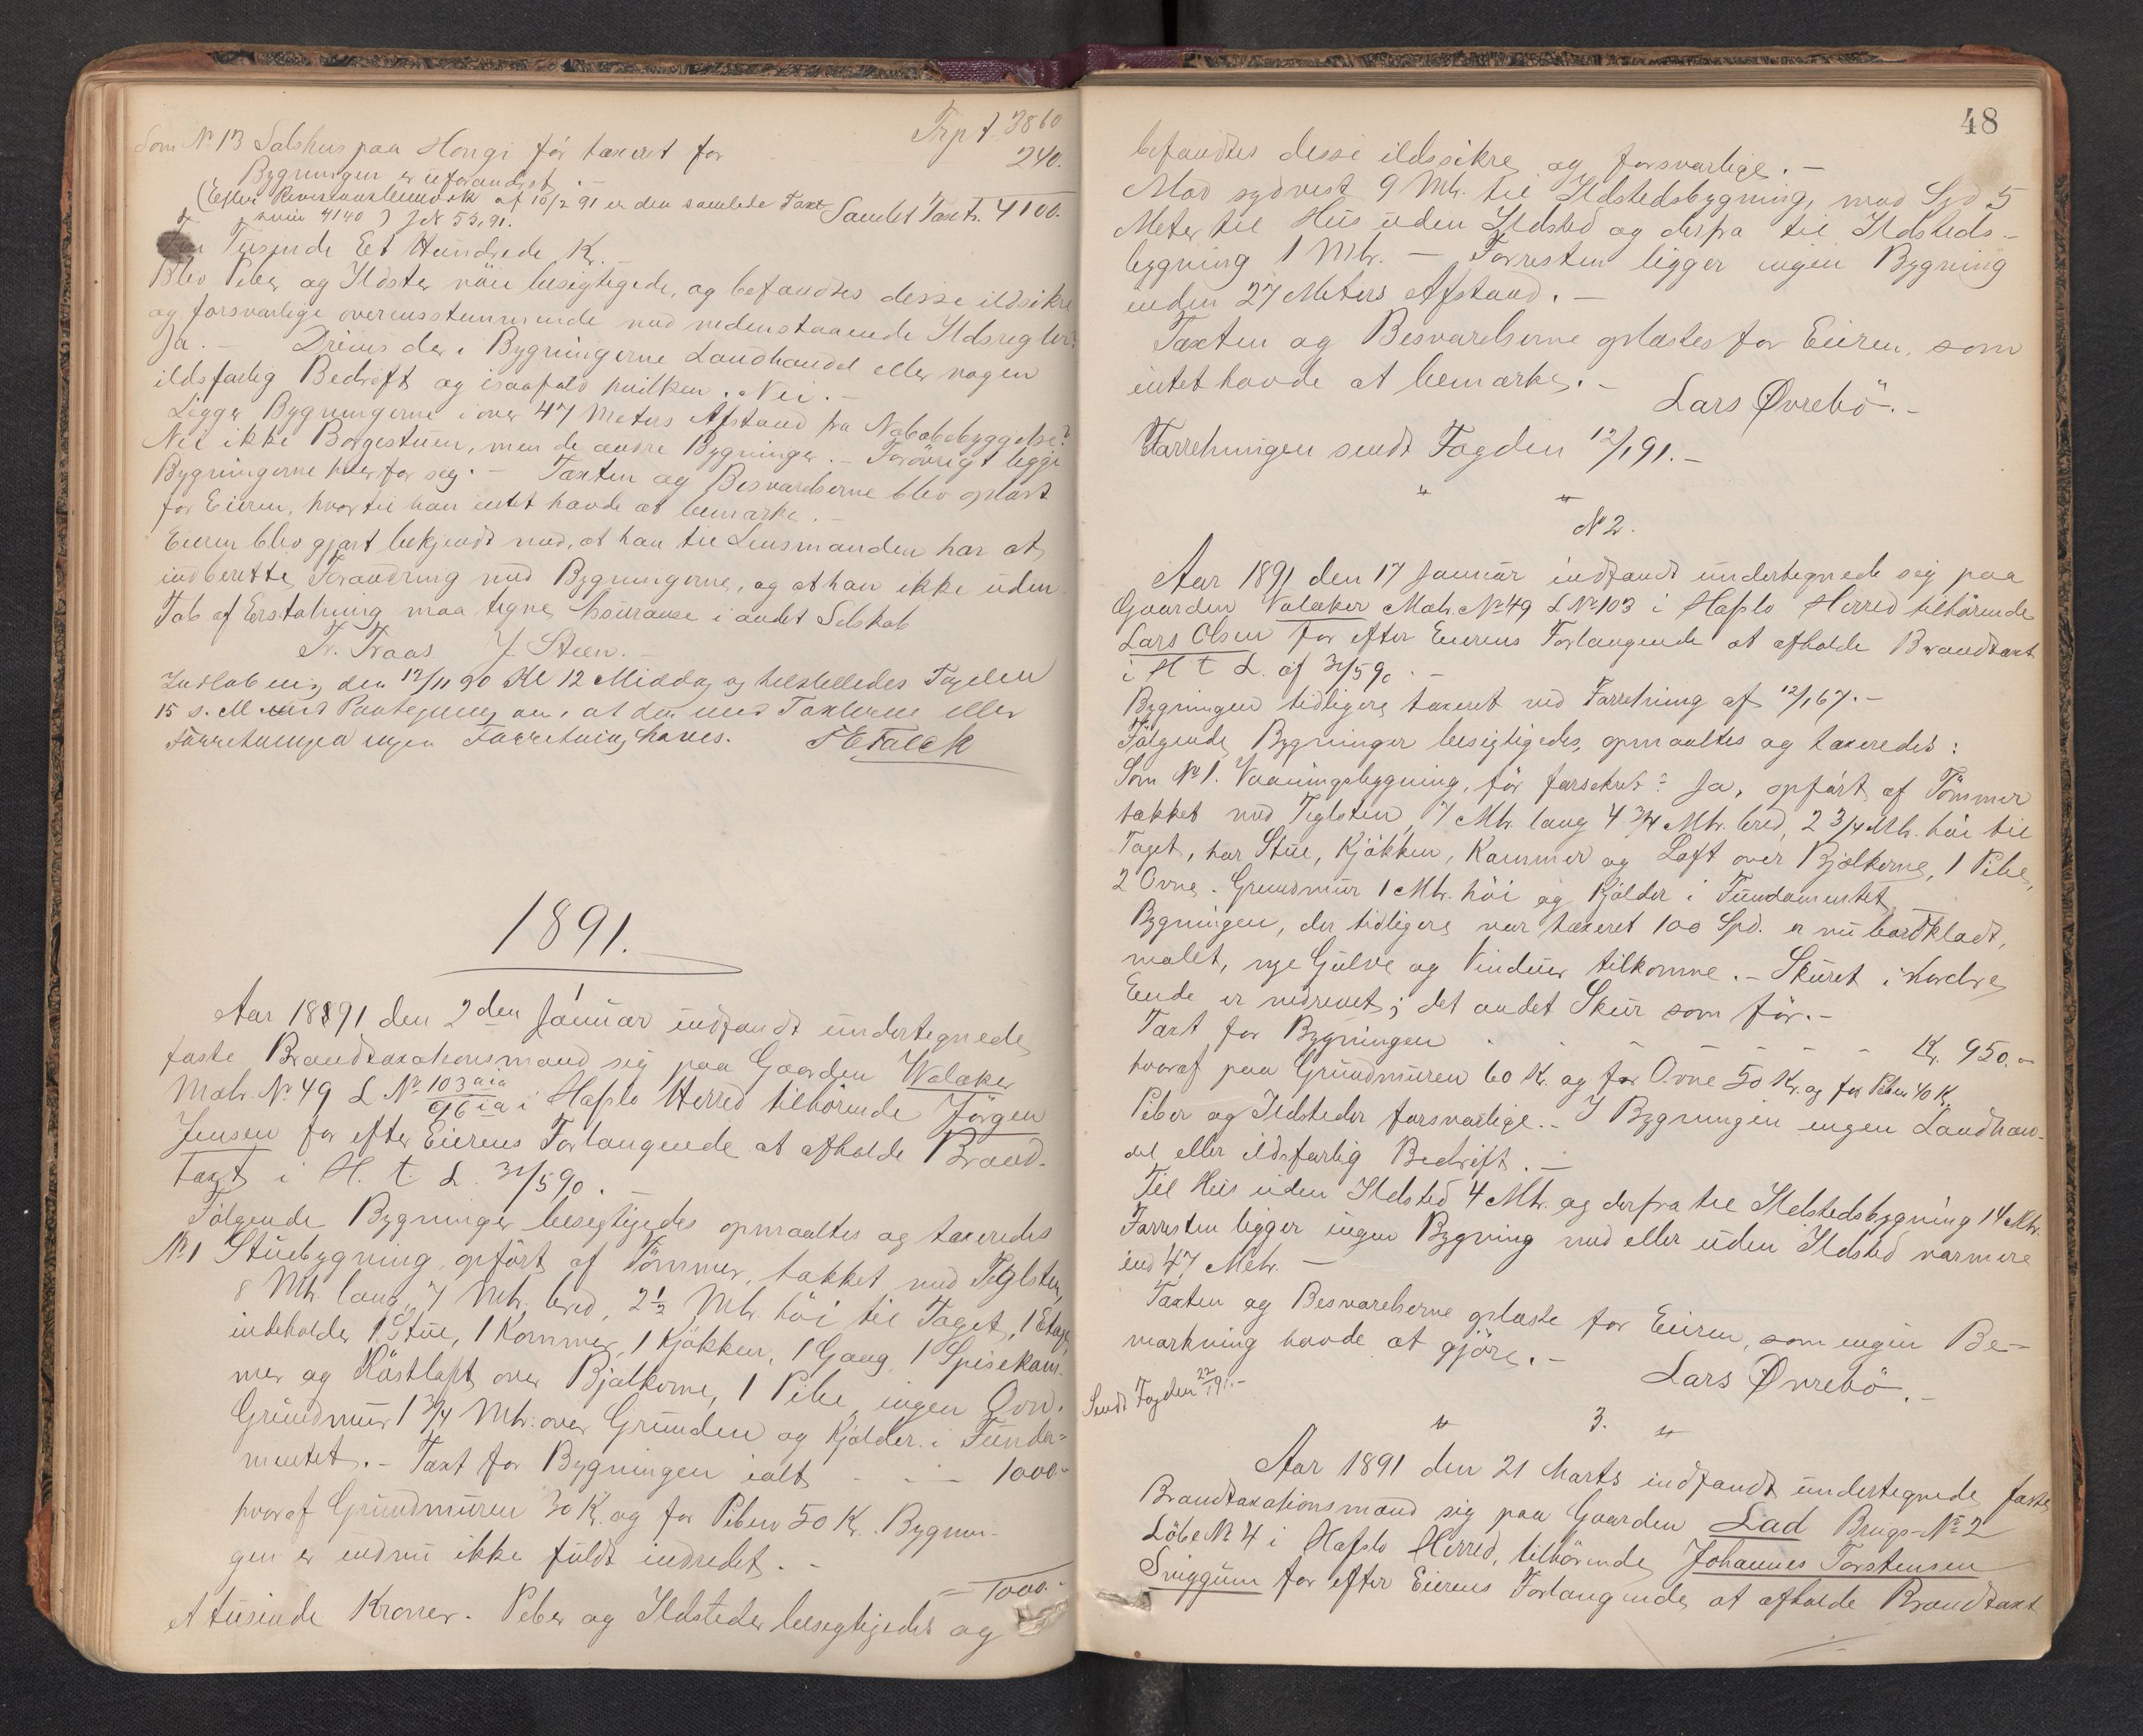 Trp f. 3860
Som No 13 Salshus paa Hongi før taxeret for 240.
Bygningen er uforandret. -
(Efter Revisionsbemærk af 10/2 91 er den samlede Taxt
4140) J.N 55, 91. Samlet Taxt Kr. 4100.
Tusinde Et Hundrede Kr. -
Blev Piber og Ildsteder nöie besigtigede, og befandtes disse ildsikre
og forsvarlige overensstemmende med nedenstaaende Ildsregler?
Ja. - Drives der i Bygningerne Landhandel eller nogen
ildsfarlig Bedrift og isaafald hvilken. Nei. -
Ligger Bygningerne i over 47 Meters Afstand fra Nabobebyggelse?
Nei ikke Borgestuen, men de andre Bygninger. - Forövrigt ligge
Bygningerne hver for seg. - Taxten og Besvarelserne blev oplæst
for Eieren, hvortil han intet havde at bemærke. -
Eieren blev gjort bekjendt med, at han til Lensmanden har at
indberette Forandring med Bygningerne, og at han ikke uden
Tab af Erstatning maa tegne Assurance i andet Selskab
Fr. Traas J. Steen. -
Indlob mig den 12/11 90 Kl 12 Middag og tilstilledes Fogden
15 s. M med Paategning om, at der med Taxterne eller
Forretningen ingen Forretning haves. Falck
1891.
Aar 1891 den 2den Januar indfandt undertegnede
faste Brandtaxationsmand sig paa Gaarden Walaker
Matr. No 49 L No 103 aia
96 ia i Hafslo Herred tilhörende Jörgen
Jensen for efter Eierens Forlangende at afholde Brand-
taxt i H. t. L. 31/5 90. -
Fölgende Bygninger besigtigedes opmaaltes og taxeredes
No 1 Stuebygning opfört af Tömmer, tækket med Teglsten,
8 Mtr. lang, 7 Mtr. bred, 2 1/2 Mtr. höi til Taget, 1 Etage
indeholder 1 Stue, 1 Kammer, 1 Kjökken, 1 Gang, 1 Spisekam-
mer og Röstloft over Bjælkerne, 1 Pibe, ingen Ovn.
Grundmur 1 3/4 Mtr. over Grunden og Kjælder i Funda-
mentet. - Taxt for Bygningen ialt - - - 1000.-
hvoraf Grundmuren 30 Kr. og for Piben 50 Kr. Bygnin-
gen er endnu ikke fuldt indredet. -
1000.-
Et tusinde Kroner. Piber og Ildsteder besigtigedes og
48
befandtes disse ildssikre og forsvarlige. -
Mod sydvest 9 Mtr. til Ildstedsbygning, mod Syd 5
Meter til Hus uden Ildsted og derfra til Ildsteds-
bygning 1 Mtr. - Forresten ligger ingen Bygning
inden 27 Meters Afstand. -
Taxten og Besvarelserne oplæstes for Eieren, som
intet havde at bemærke. -
Lars Övrebö. -
Forretningen sendt Fogden 12/1 91. -
" "
No 2.
Aar 1891 den 17 Januar indfandt undertegnede sig paa
Gaarden Valaker Matr. No 49 L No 103 i Hafslo Herred tilhörende
Lars Olsen for efter Eierens Forlangende at afholde Brandtaxt
i H t L. af 31/5 90. -
Bygningen tidligere taxeret ved Forretning af 12/1 67. -
Fölgende Bygninger besigtigedes, opmaaltes og taxeredes:
Som No 1. Vaaningsbygning, för forsikret? Ja, opfört af Tömmer
tækket med Teglsten, 7 Mtr. lang 4 3/4 Mtr. bred, 2 3/4 Mtr. höi til
Taget, har Stue, Kjökken, Kammer og Loft over Bjelkerne, 1 Pibe,
2 Ovne. Grundmur 1 Mtr. höi og Kjælder i Fundamentet.
Bygningen, der tidligere var taxeret 100 Spd. er nu bordklædt,
malet, nye Gulve og Vinduer tilkomne. - Skuret i Nordre
Ende er nedrevet; det andet Skur som för. -
Taxt for Bygningen - - - - - - Kr. 950.-
hvoraf paa Grundmuren 60 Kr. og for Ovne 50 Kr. og for Piben 40 Kr.
Piber og Ildsteder forsvarlige. - I Bygningen ingen Landhan-
del eller ildsfarlig Bedrift. -
Til Hus uden Ildsted 4 Mtr. og derfra til Ildstedsbygning 14 Mtr.
Forresten ligger ingen Bygning med eller uden Ildsted nærmere
end 47 Metr. -
Taxten og Besvarelserne oplæste for Eieren, som ingen Be-
mærkning havde at gjöre. -
Lars Övrebö. -
Sendt Fogden 22/1 91. -
" 3. "
Aar 1891 den 21 Marts indfandt undertegnede faste
Brandtaxationsmand sig paa Gaarden Lad Brugs-No 2
Löbe No 4 i Hafslo Herred, tilhörende Johannes Torstensen
Sniggum for efter Eierens Forlangende at afholde Brandtaxt